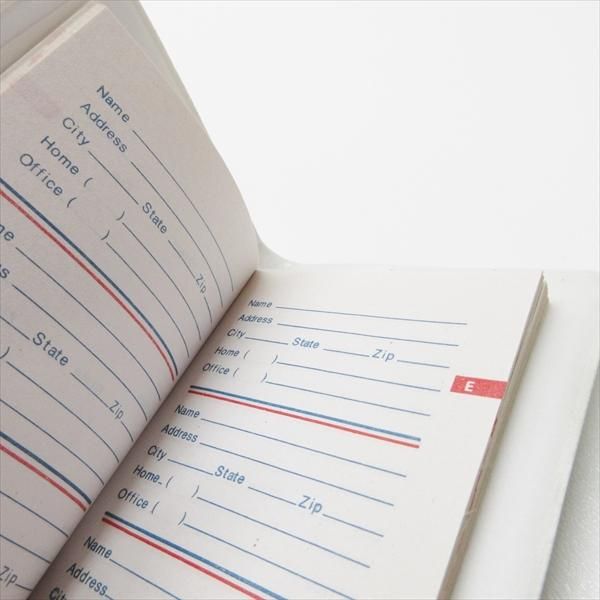 Name
Address
City State Zip
Home ( )
Office ( )
State
Zip
Zip
Name
Address
City State Zip
Home ( )
Office ( )
E
Name
Address
City State Zip
Home ( )
Office ( )
Name
Address